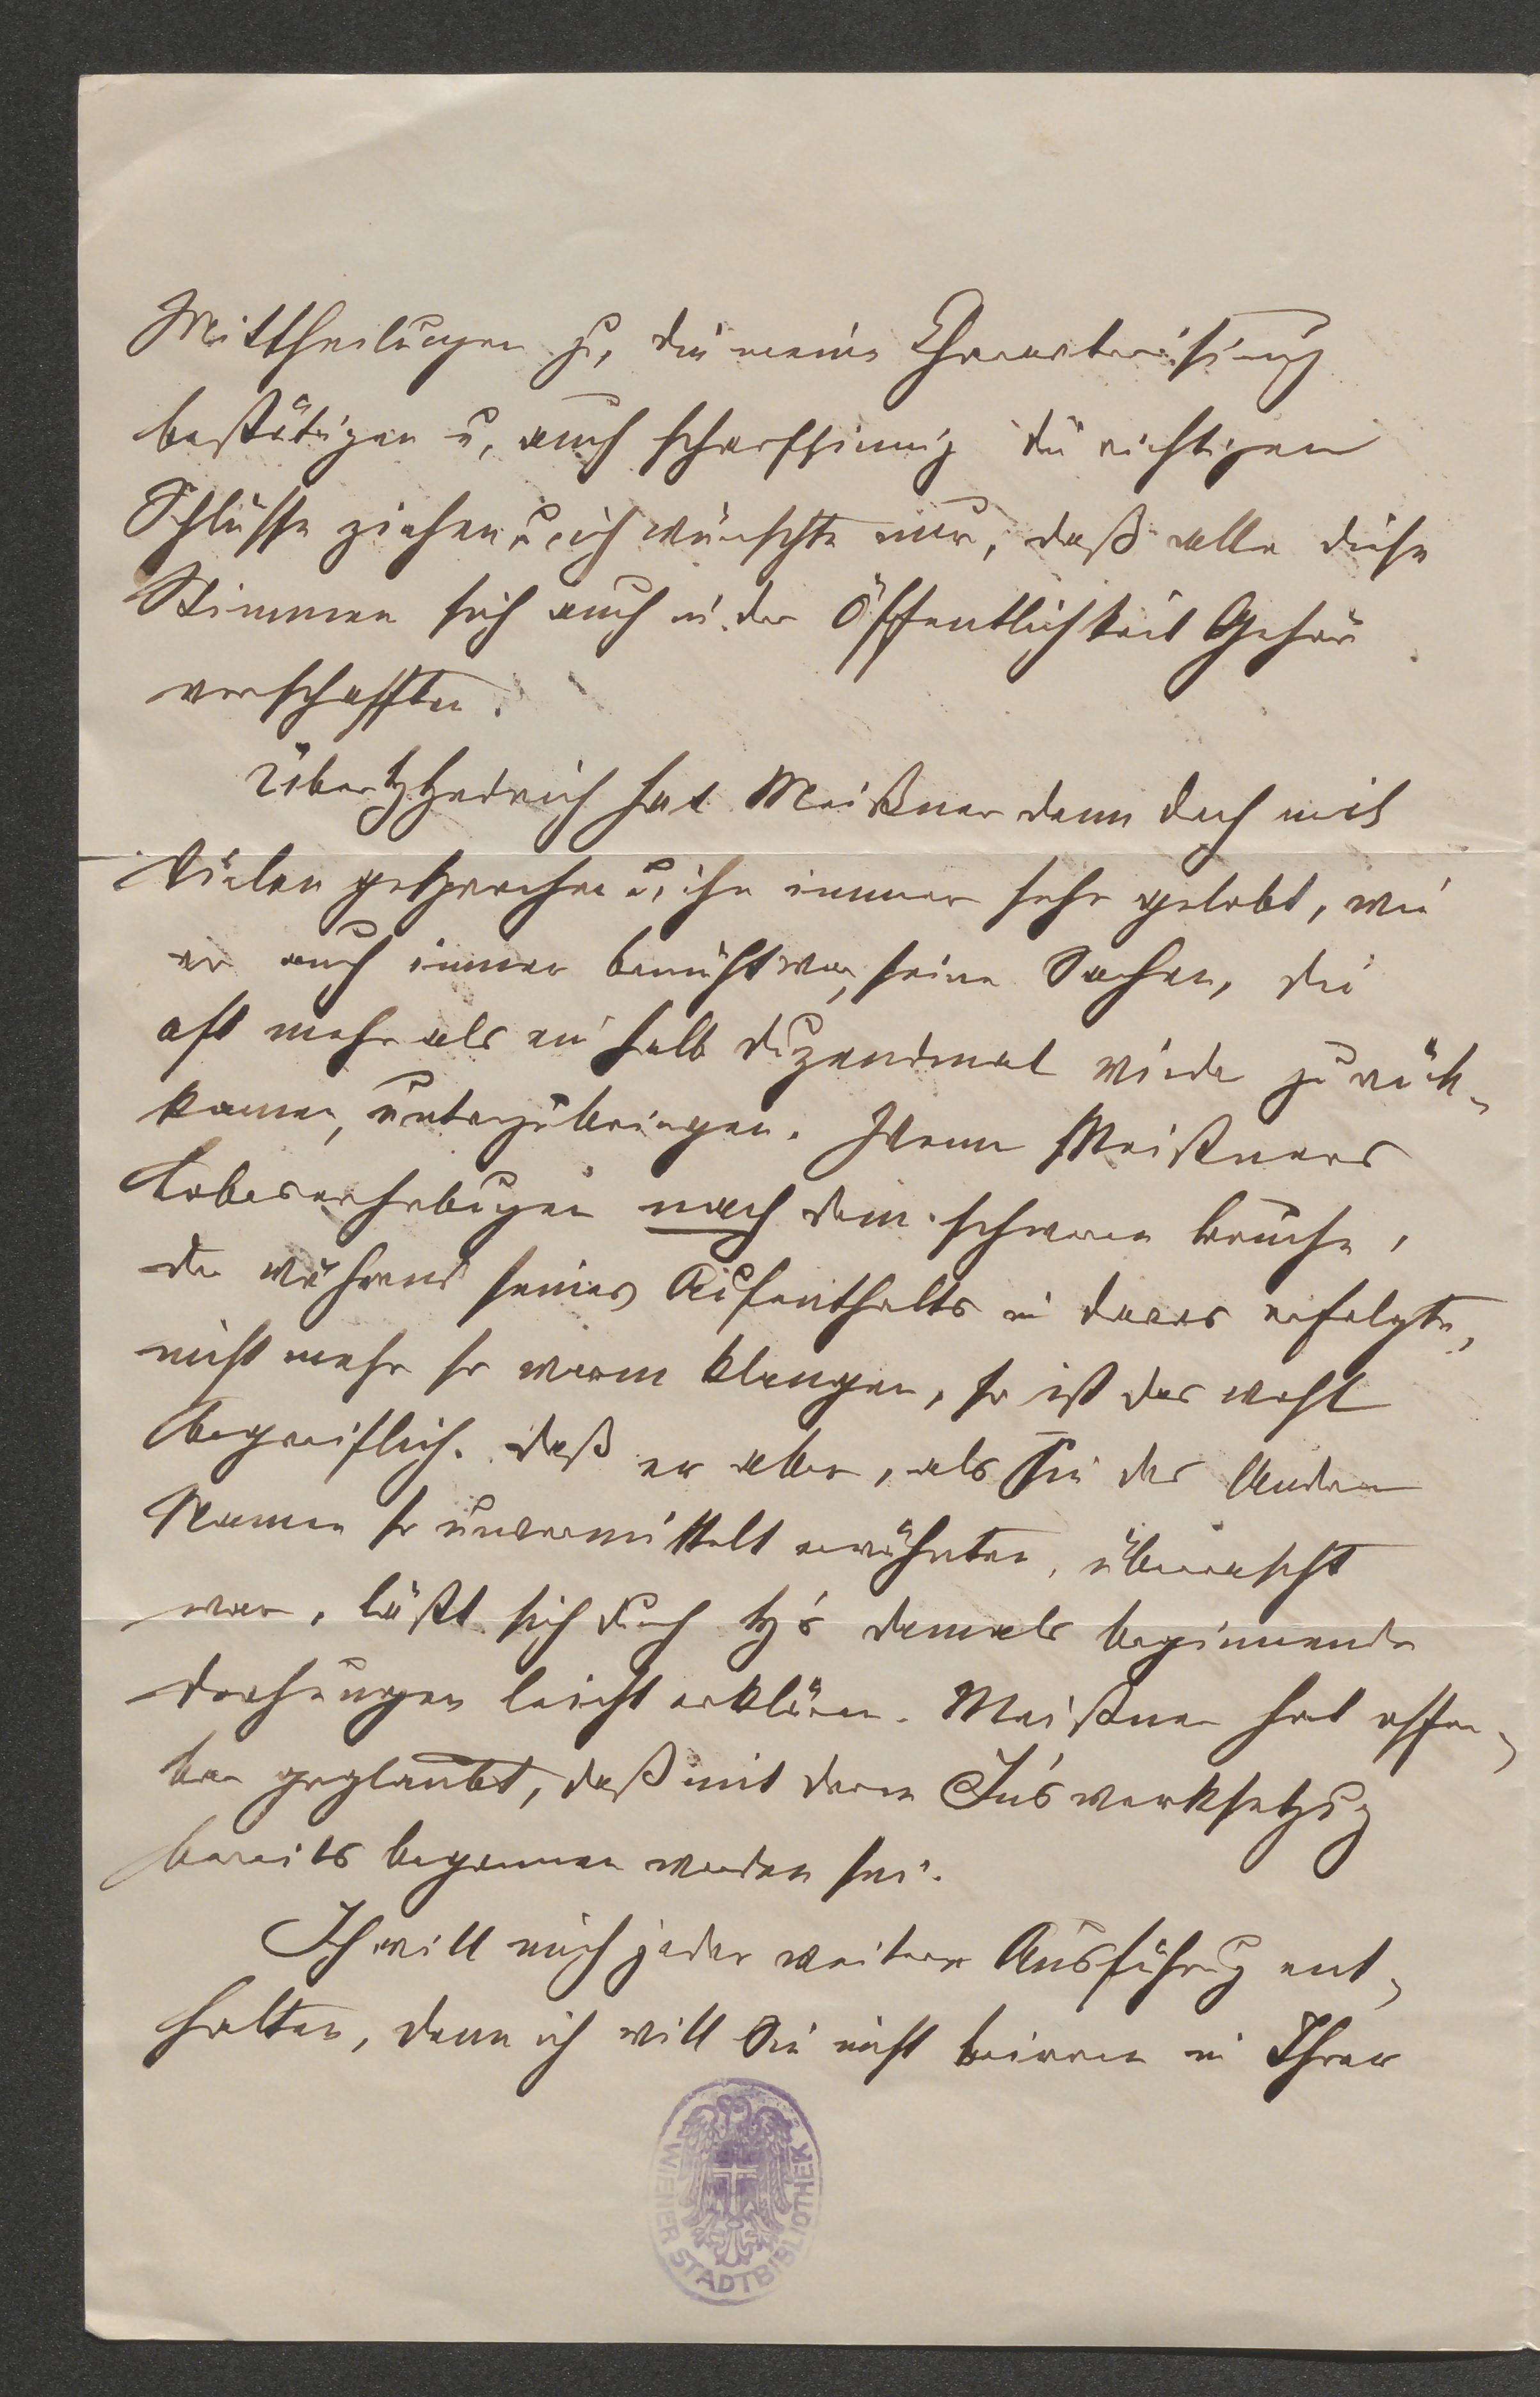 Mittheilungen zu, die meine Charakterisirung
bestätigen u. auch scharfsinnig die richtigen
Schlüsse ziehen u. ich wünschte nur, daß alle diese
Stimmen sich auch in der Öffentlichkeit Gehör
verschafften.
Über Hedrich hat Meißner denn doch mit
Vielen gesprochen u. ihn immer sehr gelobt, wie
er auch immer bemüht war, seine Sachen, die
oft mehr als ein halb duzendmal wieder zurück-
kamen, unterzubringen. Wenn Meißners
Lobeserhebungen nach dem schweren Bruche,
der während seines Aufenthalts in Davos erfolgte,
nicht mehr so warm klangen, so ist das wohl
begreiflich. Daß er aber, als Sie des Andern
Namen so unvermittelt erwähnten, überrascht
war, läßt sich durch H's damals beginnende
Drohungen leicht erklären. Meißner hat offen-
bar geglaubt, daß mit deren Ins werksetzung
bereits begonnen worden sei.
Ich will mich jeder weitern Ausführung ent-
halten, denn ich will Sie nicht beirren in Ihrer
WIENER STADTBIBLIOTHEK